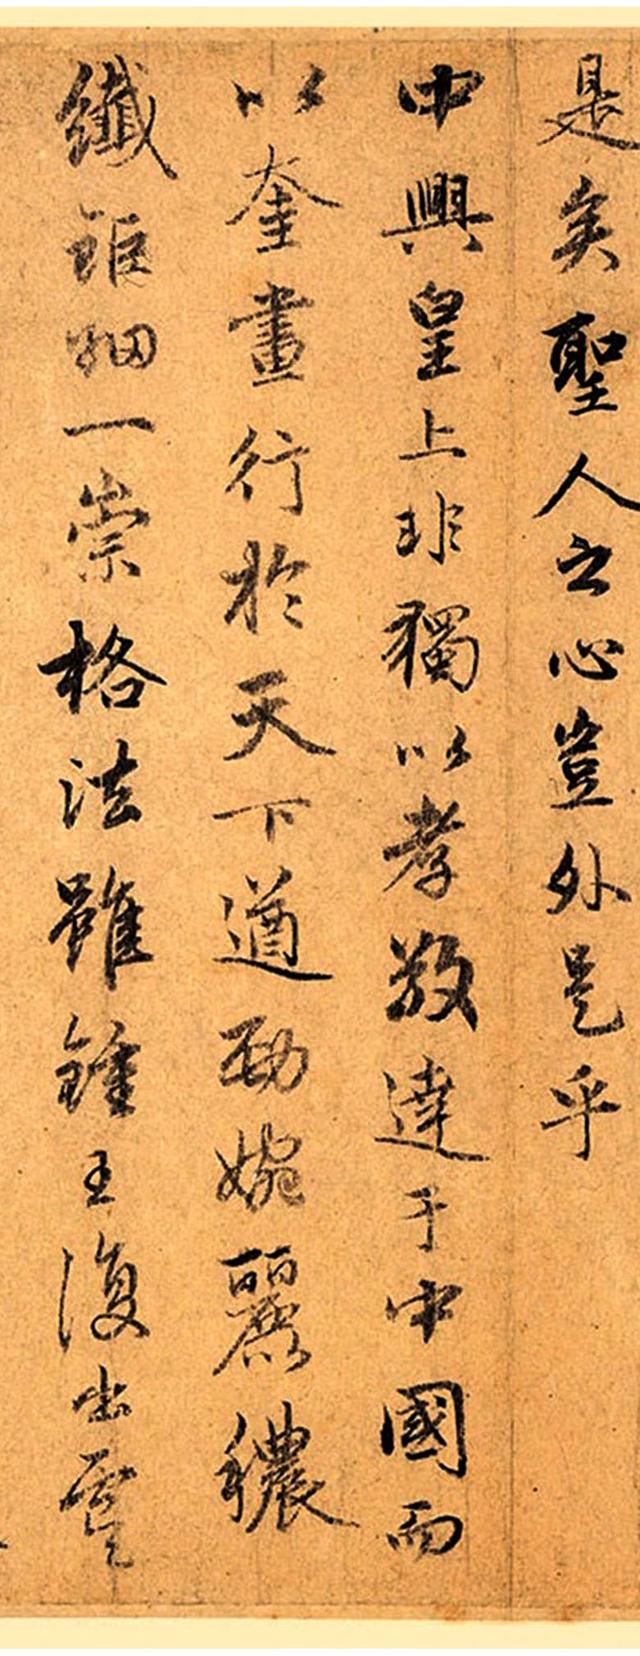 是矣聖人之心豈外是乎
中興皇上非獨以孝敬達于中國而
以奎畫行於天下遒勁婉麗穠
纖鉅細一崇格法雖鍾王復出